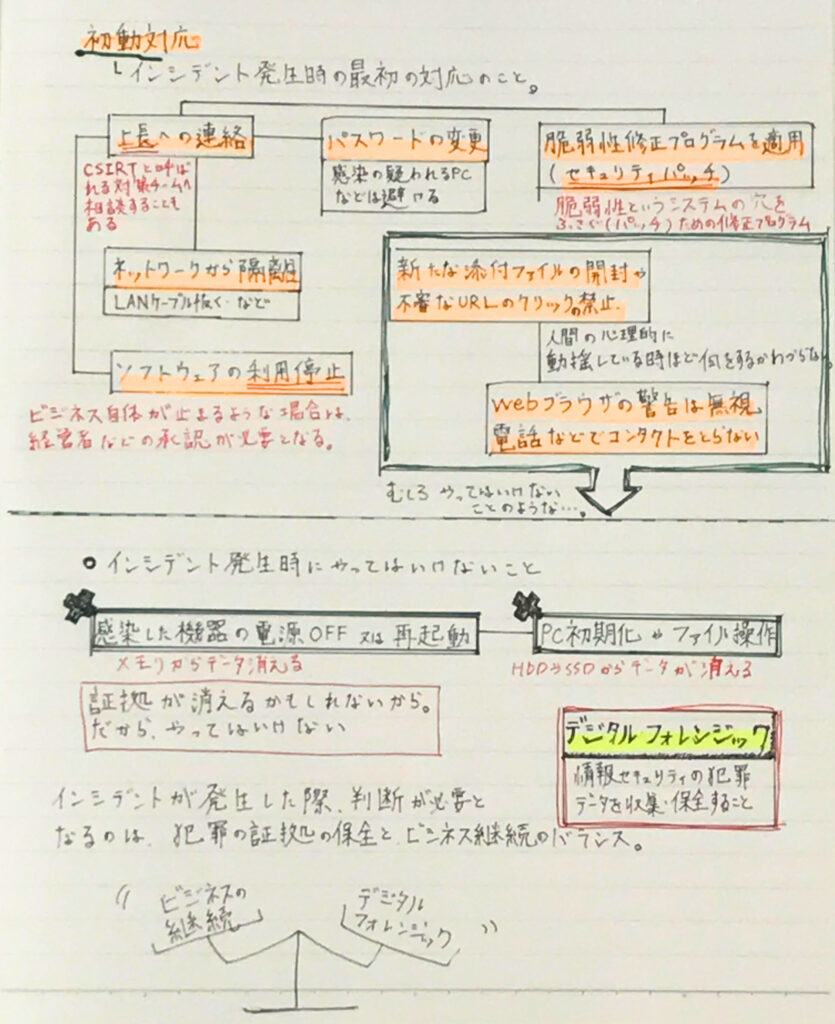 初動対応
インシデント発生時の最初の対応のこと。
上長への連絡
CSIRTと呼ば
れる対策チームへ
相談することも
ある
パスワードの変更
感染の疑われるPC
などは避ける
脆弱性修正プログラムを適用
(セキュリティパッチ)
脆弱性というシステムの穴を
ふさぐ(パッチ)ための修正プログラム
ネットワークから隔離
LANケーブル抜く・など
ソフトウェアの利用停止
ビジネス自体が止まるような場合は、
経営者などの承認が必要となる。
新たな添付ファイルの開封や
不審なURLのクリックの禁止.
人間の心理的に
動揺している時ほど何をするかわからない
Webブラウザの警告は無視
電話などでコンタクトをとらない
むしろやってはいけない
ことのような…。
インシデント発生時にやってはいけないこと
感染した機器の電源OFF 又は再起動
メモリからデータ消える
PC初期化やファイル操作
HDDやSSDからデータが消える
証拠が消えるかもしれないから。
だから、やってはいけない
デジタルフォレンジック
情報セキュリティの犯罪
データを収集・保全すること
インシデントが発生した際、判断が必要と
なるのは、犯罪の証拠の保全と、ビジネス継続のバランス。
ビジネスの
継続
デジタル
フォレンジック